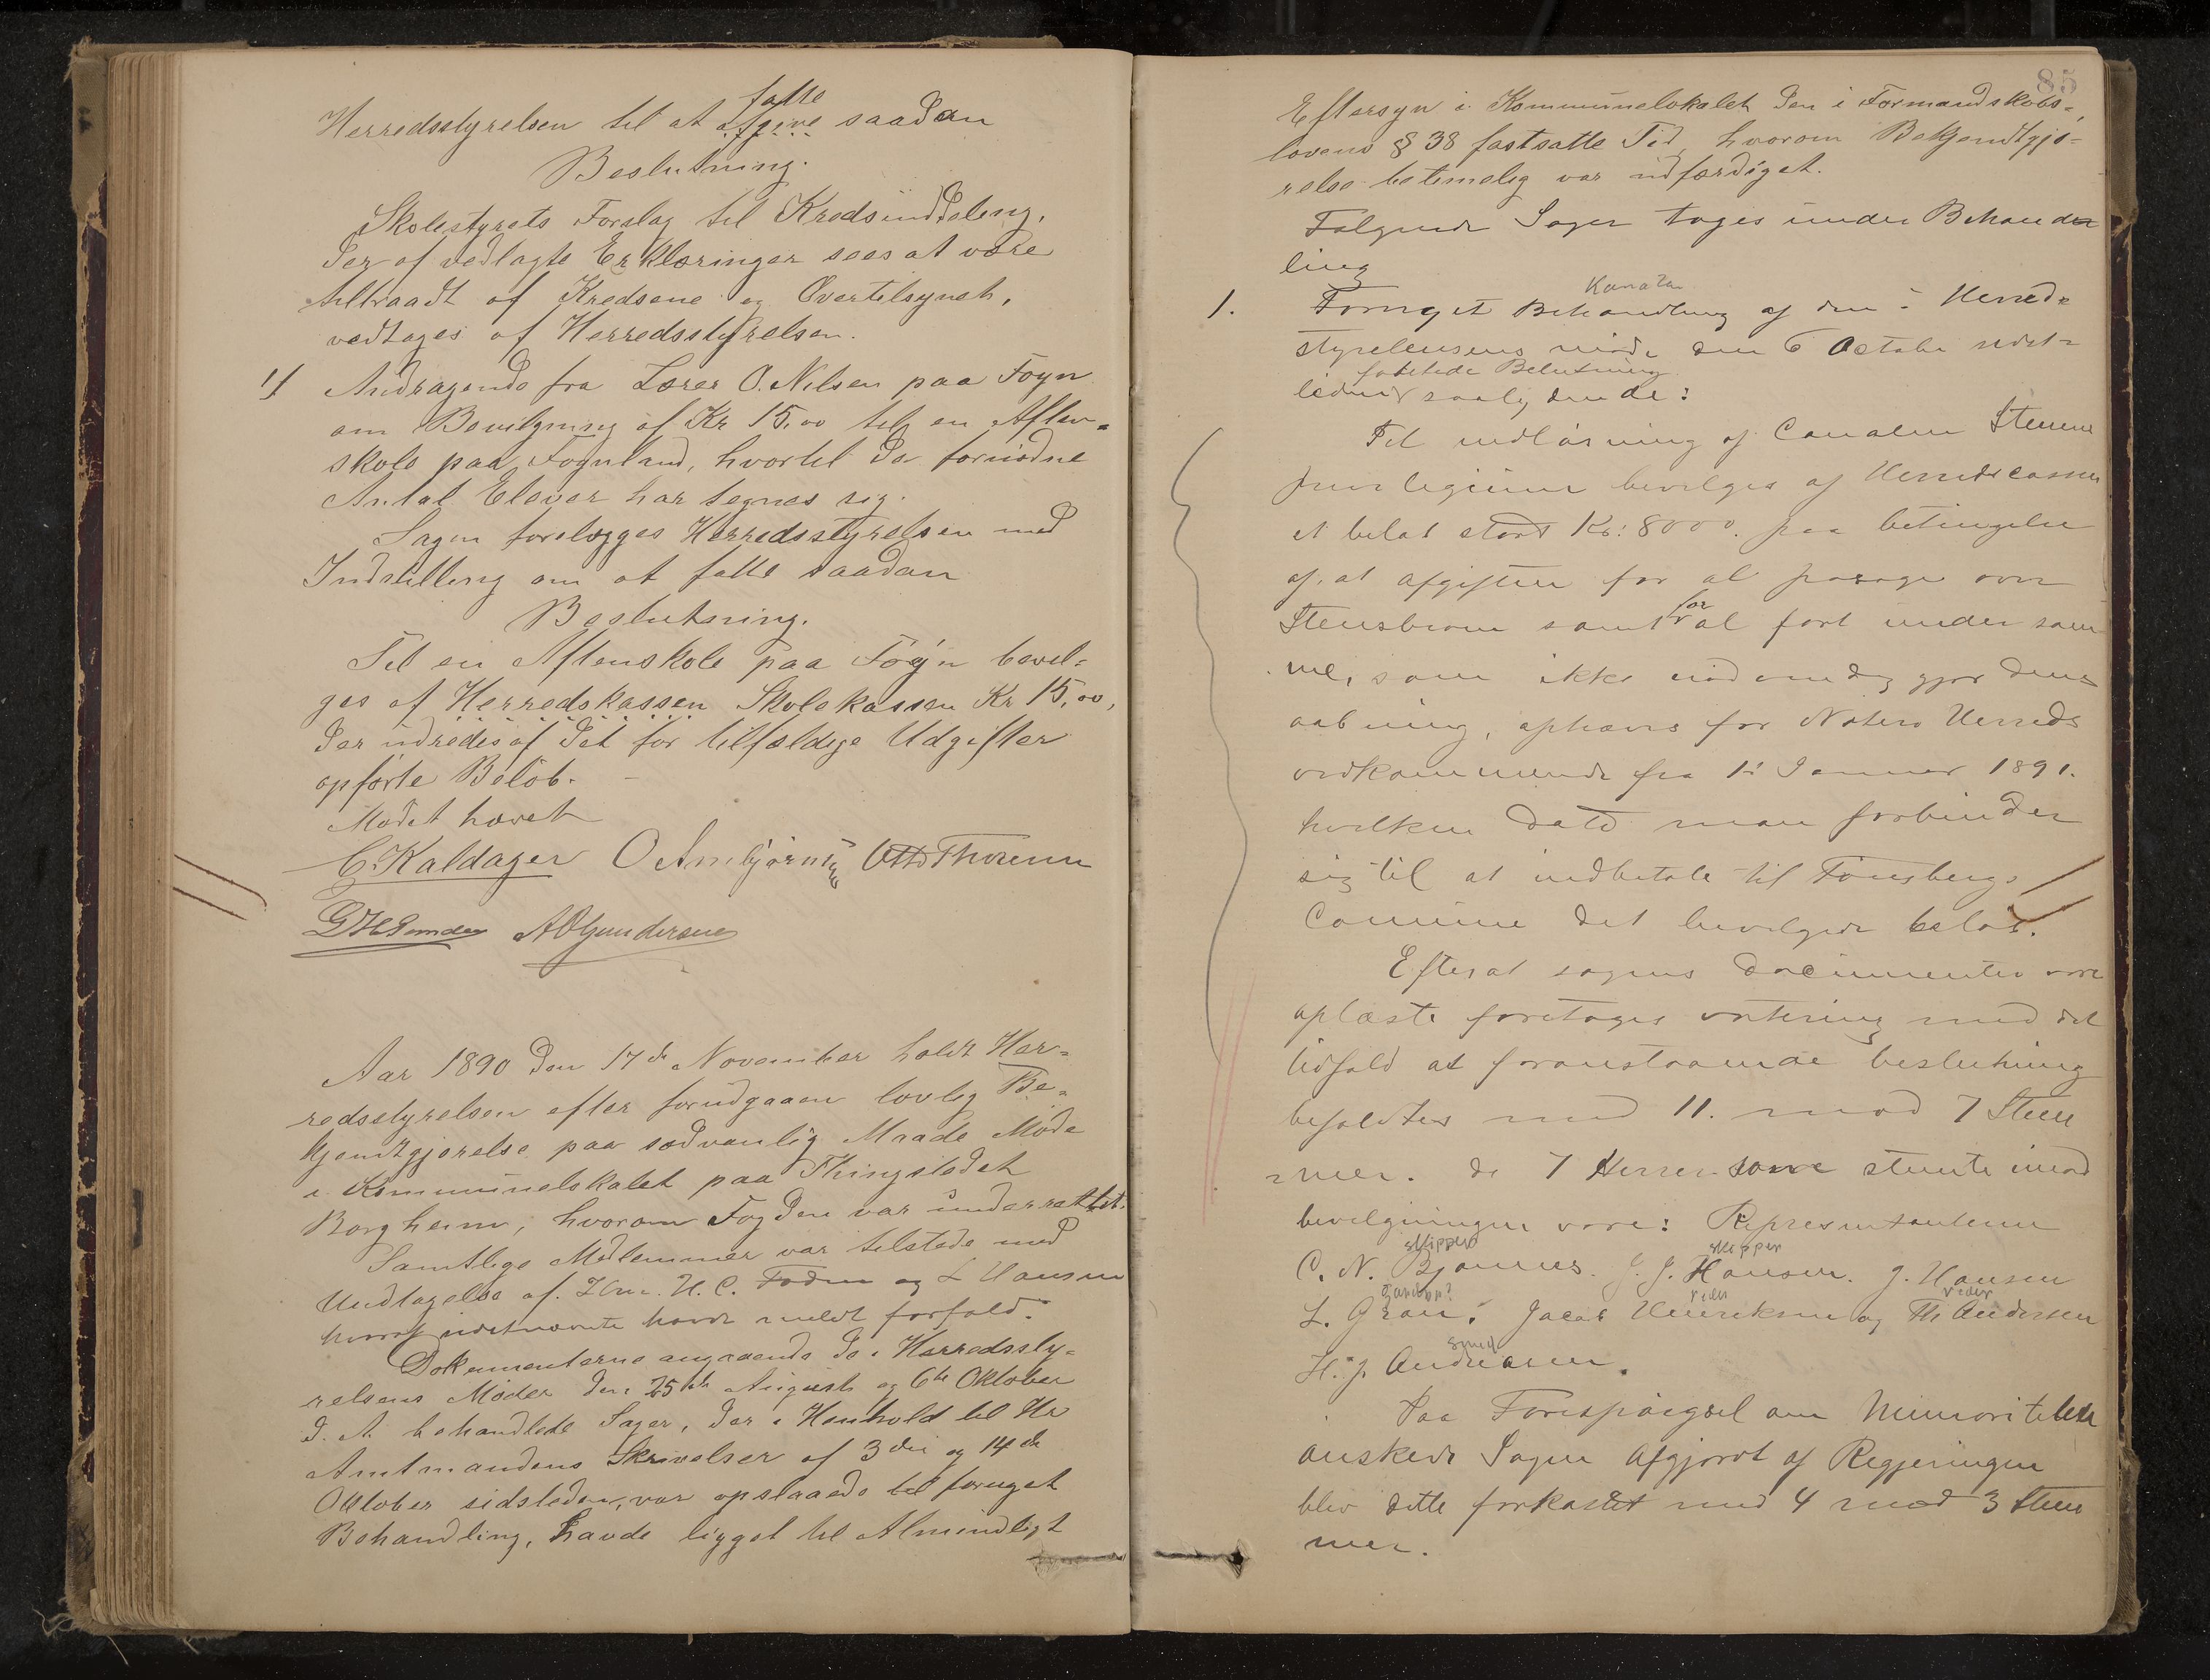 fatte
Herredsstyrelsen til at afgive saadan
Beslutning.
Skolestyrets Forslag til Kredsinddeling,
der af vedlagte Erklæringer sees at være
tiltraadt af Kredsene og Overtilsynet,
vedtages af Herredsstyrelsen.
Andragende fra Lærer O. Nilsen paa Føyn
om Bevilgning af Kr 15,00 til en Aften-
skole paa Føynland, hvortil de fornødne
Antal Elever har tegnes sig.
Sagen forelægges Herredsstyrelsen med
Indstilling om at fatte saadan
Beslutning.
Til en Aftenskole paa Föÿn bevil-
ges af Herredskassen Skolekassen Kr 15,00,
der udredes af det for tilfældige Udgifter
opførte Beløb. –
Mødet hævet
C. Kaldager O Ambjørnsen Otto Thoresen
A O Gundersen
Aar 1890 den 17de November holdt Her-
redsstyrelsen efter forudgaaen lovlig Be-
kjendtgjørelse paa sædvanlig Maade Møde
i Kommunelokalet paa Thingstedet
Borgheim, hvorom Fogden var underrettet.
Samtlige Medlemmer var tilstede med
Undtagelse af Hrr. H. C. Foden og L Hansen
hvoraf sidstnævnte havde meldt forfald.
Dokumenterne angaaende de i Herredssty-
relsens Møder den 25de August og 6te Oktober
d. A. behandlede Sager, der i Henhold til Hr
Amtmandens Skrivelser af 3die og 14de
Oktober sidstleden, var opslaaede til fornyet
Behandling, havde ligget til Almindligt
85
Eftersyn i Kommunelokalet den i Formandskabs-
lovens § 38 fastsatte Tid, hvorom Bekjendtgjø-
relse betimelig var udfærdiget.
Følgende Sager toges under Behand
ling
Kanalen
1. Fornyet Behandling af den i Herred-
styrelsens møde den 6 October sidst-
fattede Beslutning
leden saalydende:
Til indløsning af Canalen Steens
privilegium bevilges af Herredscassen
et beløb stort Kr: 8000. paa betingelse
af, at afgiften for al passage over
for
Stensbroen samt al fart under sam
me, som ikke nødvendig gjør dens
aabning, ophæves for Nøtterø Herreds
vedkommende fra 1ste Januar 1891.
hvilken dato man forbinder
sig til at indbetale til Tønsbergs
Comune det bevilgede beløb.
Efterat sagens documenter vare
oplæste foretages votering med det
udfald at foranstaaende beslutning
befattes med 11. mod 7 Stem
mer. de 7 Herrer som stemte imod
bevilgningen vare: Representanterne
skipper skipper
C. N. Bjønnes. J. J. Hansen. J. Hansen
reder reder
L. Gran. Jacob Henriksen og Th Andersen
smed
H. J. Andreasen.
Paa Forespørgsel om Minoriteten
ønskede Sagen afgjordt af Regjeringen
blev dette forkastet med 4 mod 3 Stem
mer.